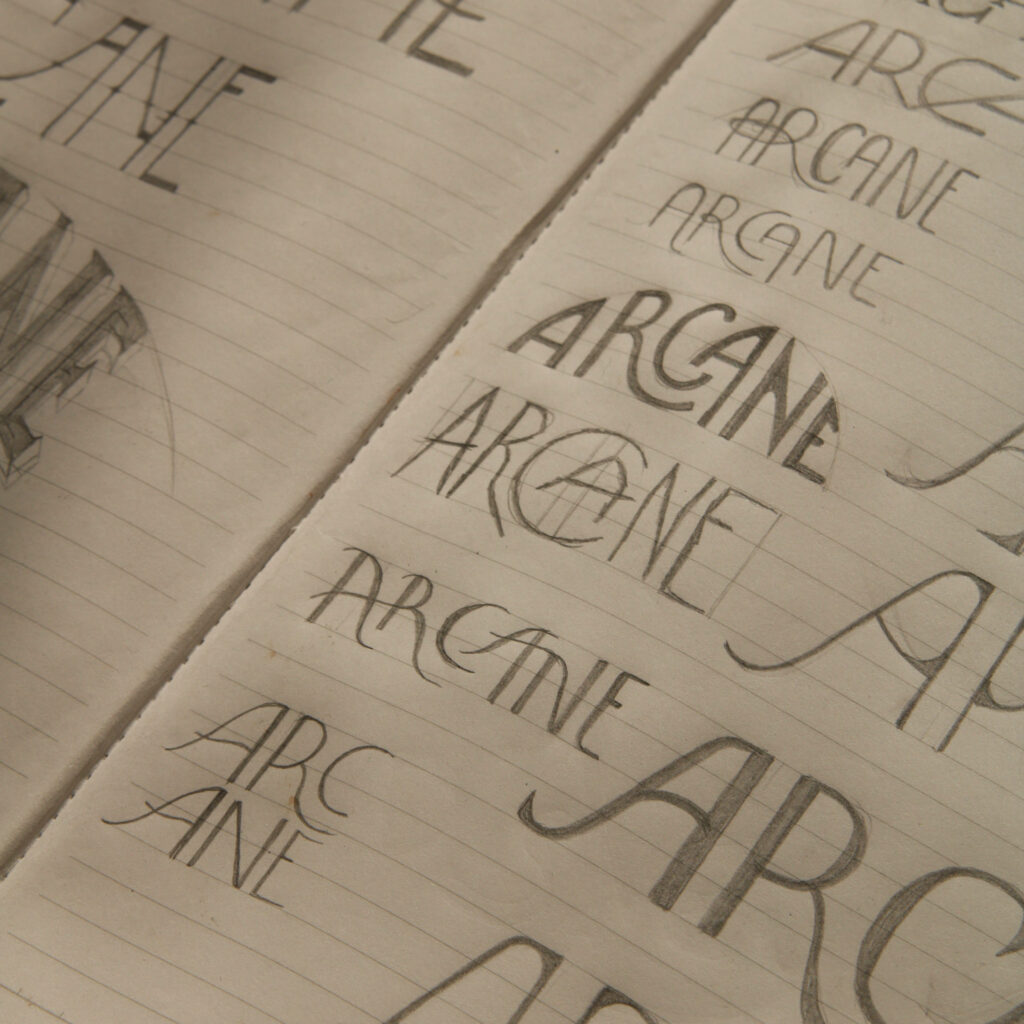 ANE
NE
ARC
ARCANE
ARCANE
ARCANE
ARCANE
ARCANE
ARC
ANE
AR
ARC